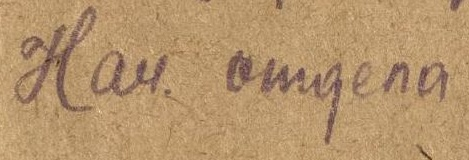 Нач. отдела